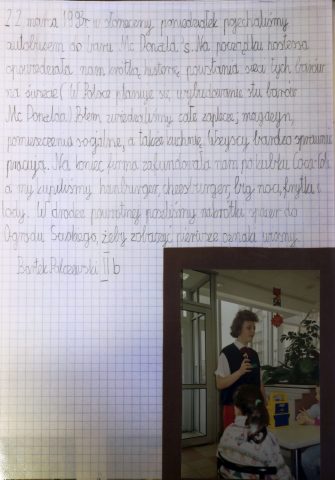 22 marca 1995r w słoneczny poniedziałek pojechaliśmy
autobusem do baru Mc Donald's. Na początku hostessa
opowiedziała nam krótką historię powstania sieci tych barów
na świecie (W Polsce planuje się wybudowanie stu barów
Mc Donalda.) Potem zwiedziliśmy całe zaplecze, magazyn,
pomieszczenia socjalne, a także kuchnię. Wszyscy bardzo sprawnie
pracują. Na koniec firma zafundowała nam po kubku Coca-Coli
a my kupiliśmy hamburger, cheesburger, big maca, frytki i
lody. W drodze powrotnej poszliśmy na krótki spacer do
Ogrodu Saskiego, żeby zobaczyć pierwsze oznaki wiosny
Bartek Polczewski II b